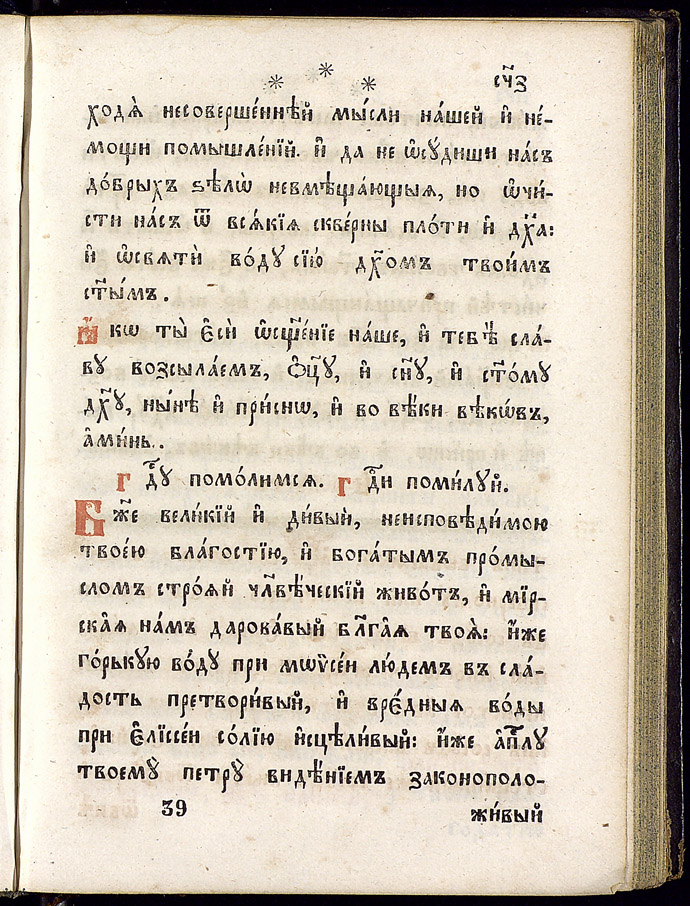 * * * сч҃з
ходѧ̀ несоверше́ннѣй мы́сли на́шей и҆ не́-
мощи помышле́нїй. и҆ да не ѡ҆сꙋ́диши на́съ
до́брыхъ ѕѣлѡ̀ невмѣща́ющыя, но ѡ҆чи́-
сти на́съ ѿ всѧ́кїя скве́рны пло́ти и҆ дꙋ́ха:
и҆ ѡ҆свѧтѝ во́дꙋ сїю̀ дх҃омъ твои́мъ
ст҃ы́мъ.
Ꙗ҆́кѡ ты̀ є҆сѝ ѡ҆сщ҃е́нїе на́ше, и҆ тебѣ̀ сла́-
вꙋ возсыла́емъ, ѻ҆ц҃ꙋ̀, и҆ сн҃ꙋ, и҆ ст҃о́мꙋ
дх҃ꙋ, ны́нѣ и҆ при́снѡ, и҆ во вѣ́ки вѣкѡ́въ,
а҆ми́нь.
Гдⷭ҇ꙋ помо́лимсѧ. Гдⷭ҇и поми́лꙋй.
Бж҃е вели́кїй и҆ ди́вый, неисповѣди́мою
твое́ю бла́гостїю, и҆ бога́тымъ про́мы-
сломъ стро́ѧй чл҃вѣ́ческїй живо́тъ, и҆ мїр-
ска̑ѧ на́мъ дарова́вый бл҃га̑ѧ твоѧ̑: и҆́же
го́рькꙋю во́дꙋ при мѡѷсе́и лю́демъ въ сла́-
дость претвори́вый, и҆ вре́дныя во́ды
при є҆лїссе́и со́лїю и҆сцѣли́вый: и҆́же а҆пⷭ҇лꙋ
твоемꙋ̀ петрꙋ̀ видѣ́нїемъ законополо-
39 жи́вый